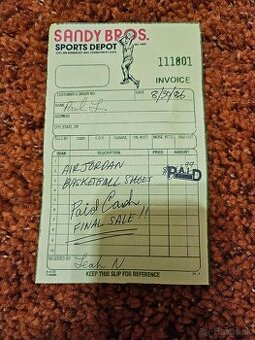 SANDY BROS.
SPORTS DEPOT
111801
INVOICE
CUSTOMER'S ORDER NO.
DATE 8/30/86
NAME Paul L.
ADDRESS
CITY, STATE, ZIP
SOLD BY CASH C.O.D. CHARGE ON ACCT. MDSE. RETD. PAID OUT
QUAN. DESCRIPTION PRICE AMOUNT
1 AIR JORDAN 99
PAID
2 BASKETBALL SHOES
3
4 Paid Cash
5 FINAL SALE!!
6
7
8
9
10
RECEIVED BY Leah N
KEEP THIS SLIP FOR REFERENCE
bazos.sk